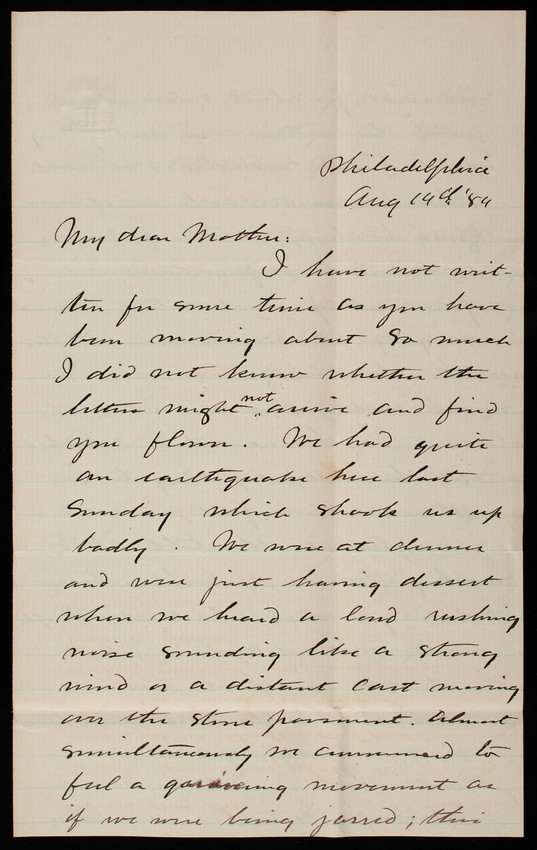 Philadelphia
Aug 14th '84
My dear Mother:
I have not writ-
ten for some time as you have
been moving about so much
I did not know whether the
letters might not arrive and find
you flown. We had quite
an earthquake here last
Sunday which shook us up
badly. We were at dinner
and were just having dessert
when we heard a loud rushing
noise sounding like a strong
wind or a distant cart moving
over the stone pavement. Almost
simultaneously we commenced to
feel a movement as
if we were being jarred; this